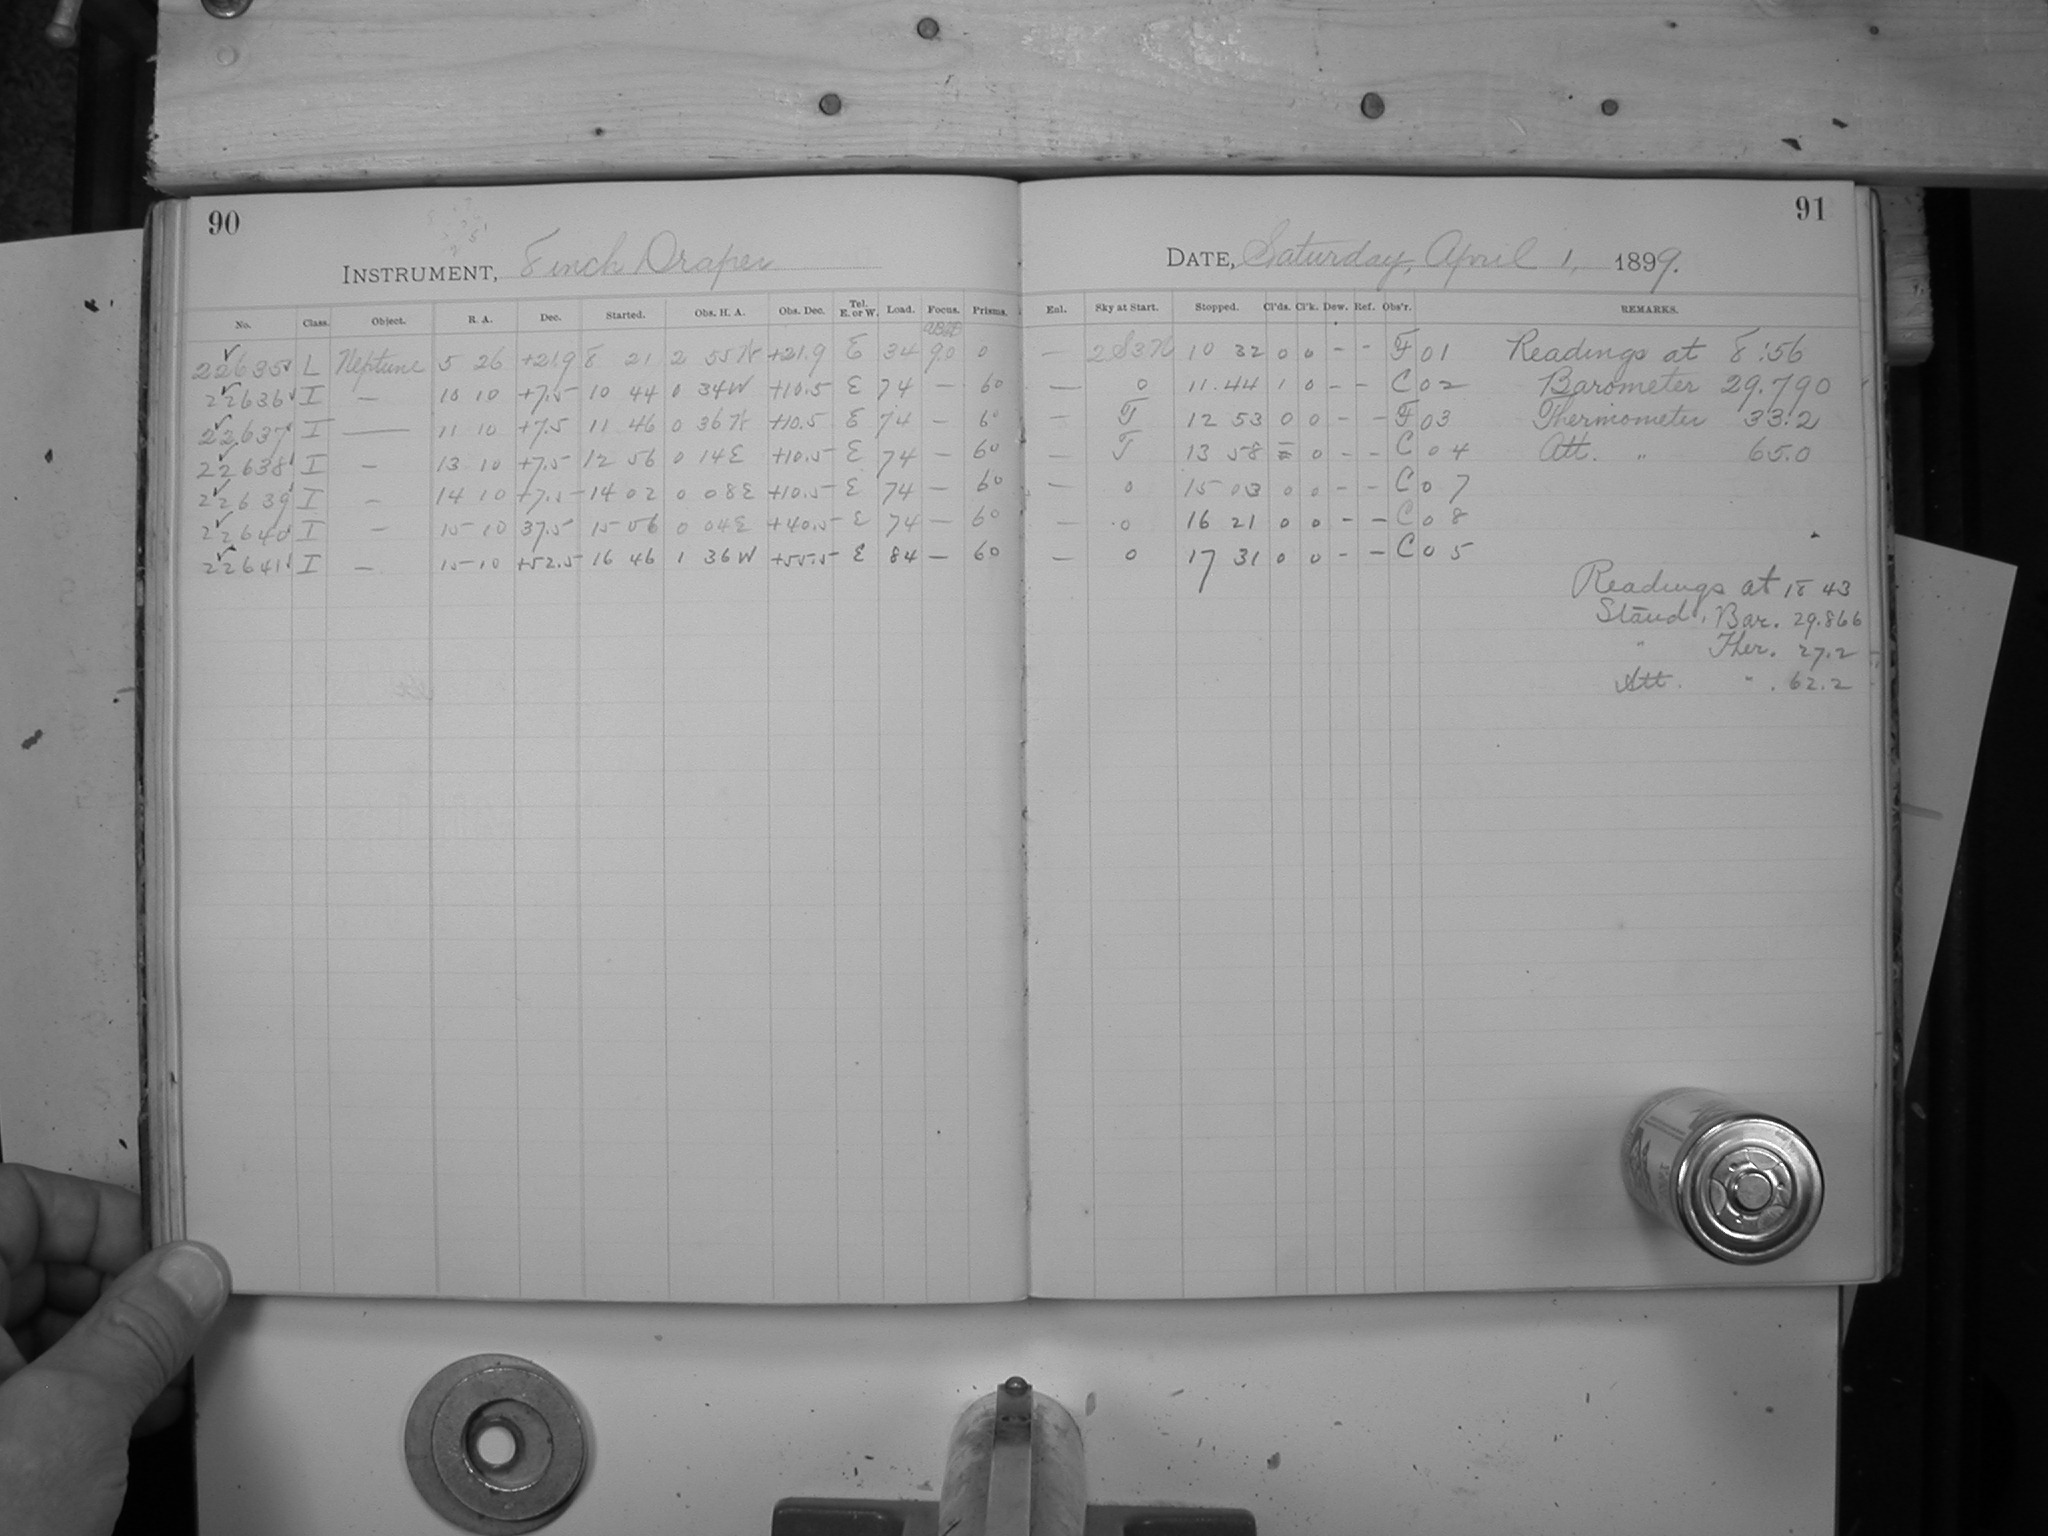 90
91
INSTRUMENT, 8 inch Draper
DATE, Saturday, April 1, 1899.
No. Class. Object. R. A. Dec. Started. Obs. H. A. Obs. Dec. Tel. E. or W. Load. Focus. Prisms. Enl. Sky at Start. Stopped. Cl'ds. Cl'k. Dew. Ref. Obs'r. REMARKS.
22635 L Neptune 5 26 +21.9 8 21 2 55W +21.9 E 34 90 0 — 2S3W 10 32 0 0 - - F 01 Readings at 8:56
22636 I — 10 10 +7.5 10 44 0 34W +10.5 E 74 — 60 — 0 11.44 1 0 - - C 02 Barometer 29.790
22637 I — 11 10 +7.5 11 46 0 36W +10.5 E 74 — 60 — F 12 53 0 0 - - F 03 Thermometer 33.2
22638 I — 13 10 +7.5 12 56 0 14E +10.5 E 74 — 60 — F 13 58 0 - - C 04 Att. " 65.0
22639 I — 14 10 +7.5 14 02 0 08E +10.5 E 74 — 60 — 0 15 03 0 0 - - C 07
22640 I — 15 10 37.5 15 06 0 04E +40.5 E 74 — 60 — 0 16 21 0 0 - - C 08
22641 I — 15 10 +52.5 16 46 1 36W +55.5 E 84 — 60 — 0 17 31 0 0 - - C 05
Readings at 18 43
Stand. Bar. 29.866
" Ther. 27.2
Att. " . 62.2